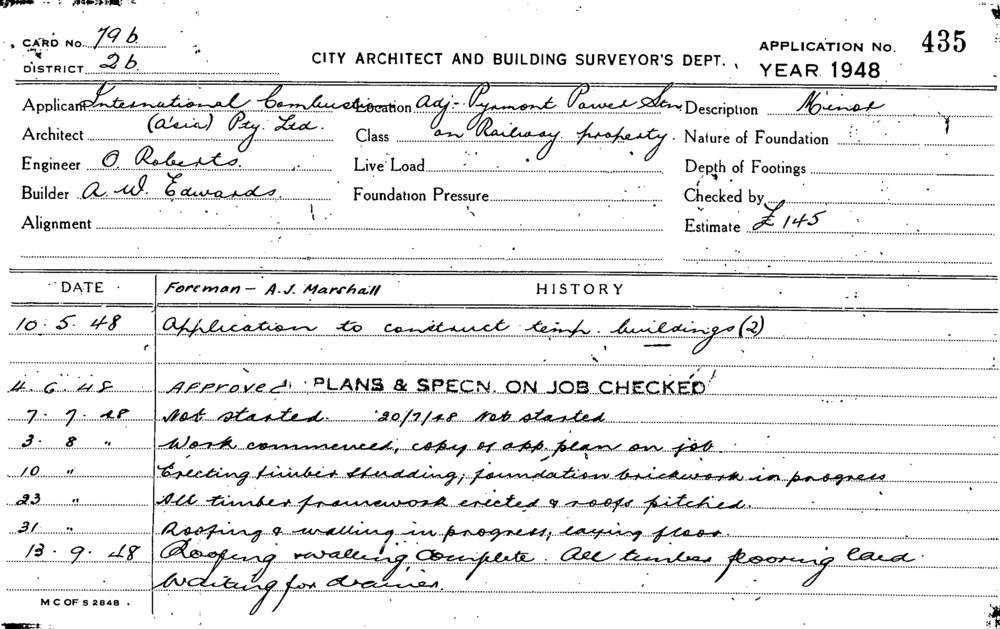 CARD No. 79b
DISTRICT 2b
CITY ARCHITECT AND BUILDING SURVEYOR'S DEPT.
APPLICATION No. 435
YEAR 1948
Applicant International Combustion Location Adj- Pyrmont Power Stn Description Minor
(Asia) Pty. Ltd.
Architect Class on Railway property. Nature of Foundation
Engineer O Roberts. Live Load Depth of Footings
Builder A. W. Edwards. Foundation Pressure Checked by
Alignment Estimate £145
DATE Foreman - A.J. Marshall HISTORY
10. 5. 48 Application to construct temp. buildings (2)
4. 6. 48 APPROVED PLANS & SPECN. ON JOB CHECKED
7. 7. 48 Not started. 20/7/48 Not started
3. 8 " Work commenced, copy of app. plan on job.
10 " Erecting timber studding; foundation brickwork in progress
23 " All timber framework erected & roofs pitched.
31 " Roofing & walling in progress, laying floor.
13. 9. 48 Roofing & walling complete. All timber flooring laid.
Waiting for drainer.
M C OF S 2848